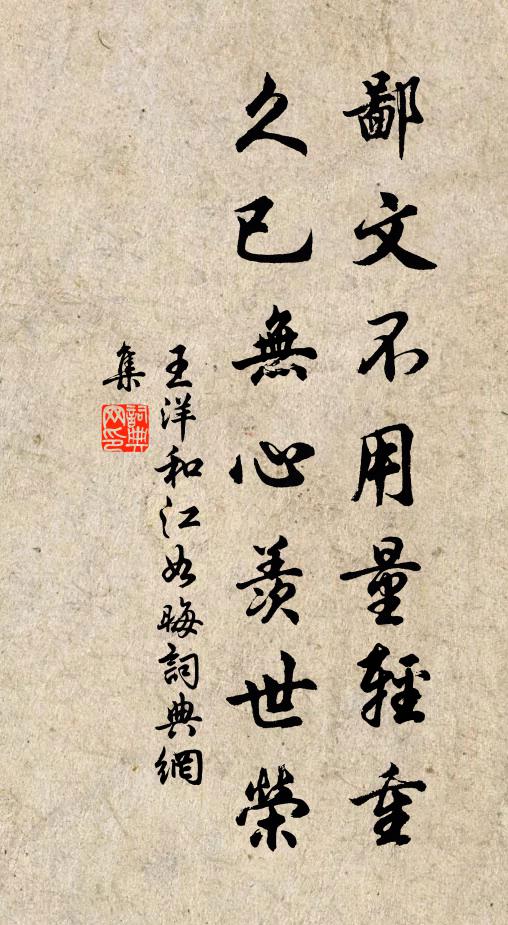 鄙文不用量輕重
久已無心羨世榮
王洋和江如晦詞典網
集
詞典網印